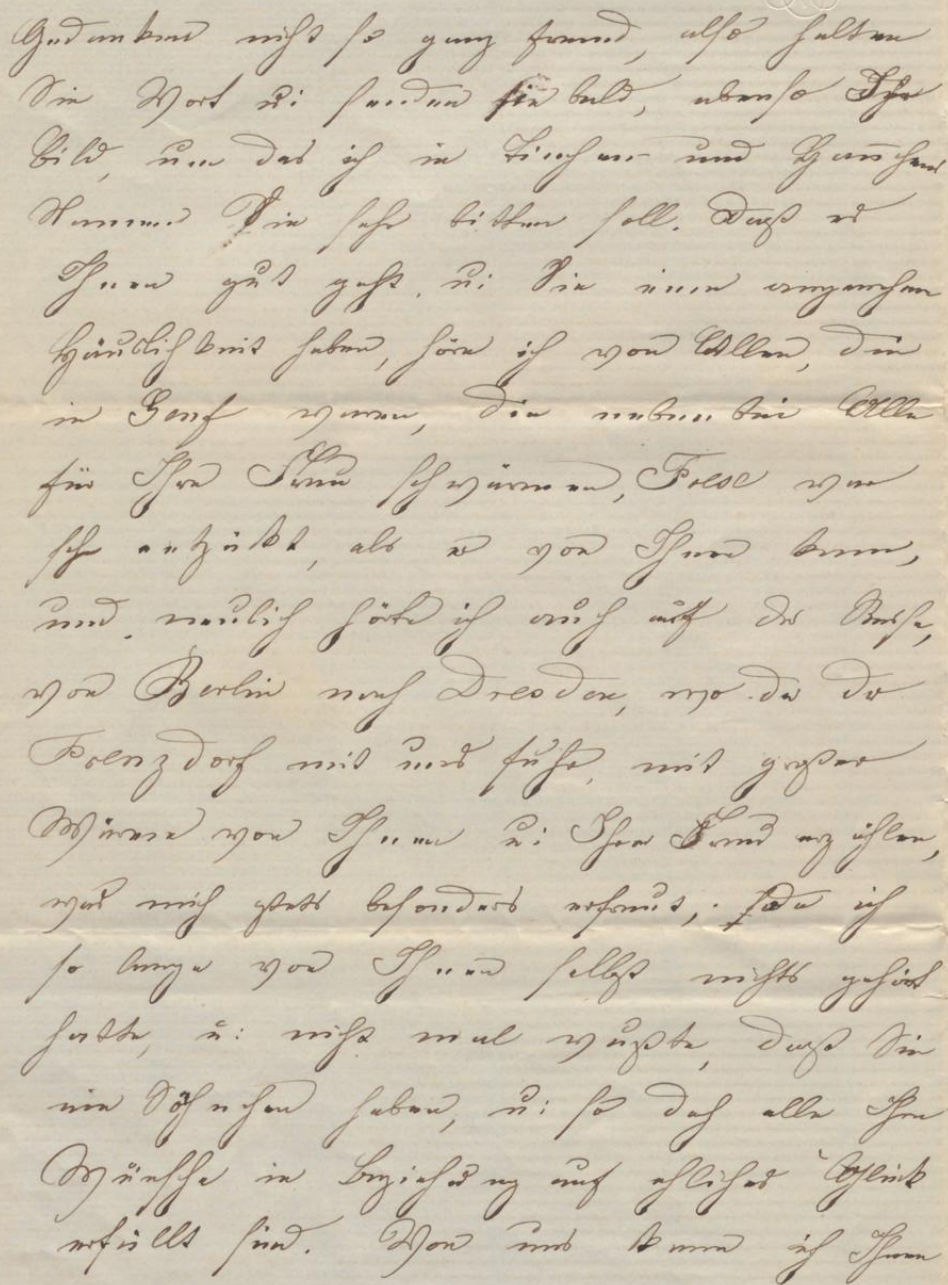 Gedanken nicht so ganz fremd, also halten
Sie Wort u: senden sie bald, ebenso Ihr
Bild, um das ich in Linchens und Hannchens
Namen Sie sehr bitten soll. Daß es
Ihnen gut geht, u: Sie eine angenehme
Häuslichkeit haben, höre ich von Allen, die
in Genf waren, die nebenbei Alle
für Ihre Frau schwärmen, war
sehr entzückt, als er von Ihnen kam,
und neulich hörte ich auch auf der Reise,
von Berlin nach Dresden, wo der
mit uns fuhr, mit großer
Wärme von Ihnen u: Ihrer Frau erzählen,
was mich stets besonders erfreut, da ich
so lange von Ihnen selbst nichts gehört
hatte, u: nicht mal wußte, daß Sie
ein Söhnchen haben, u: so doch alle Ihre
Wünsche in Beziehung auf ehliches Glück
erfüllt sind. Von uns kann ich Ihnen